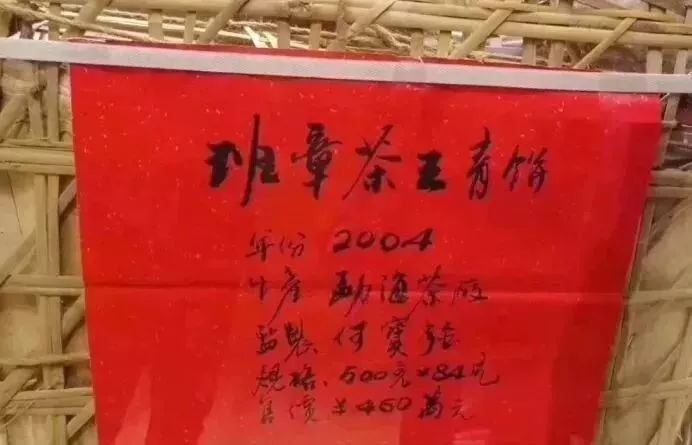 班章茶王青饼
年份 2004
生產 勐海茶厰
监製 何寳强
规格、500克×84片
售價 ¥460萬元